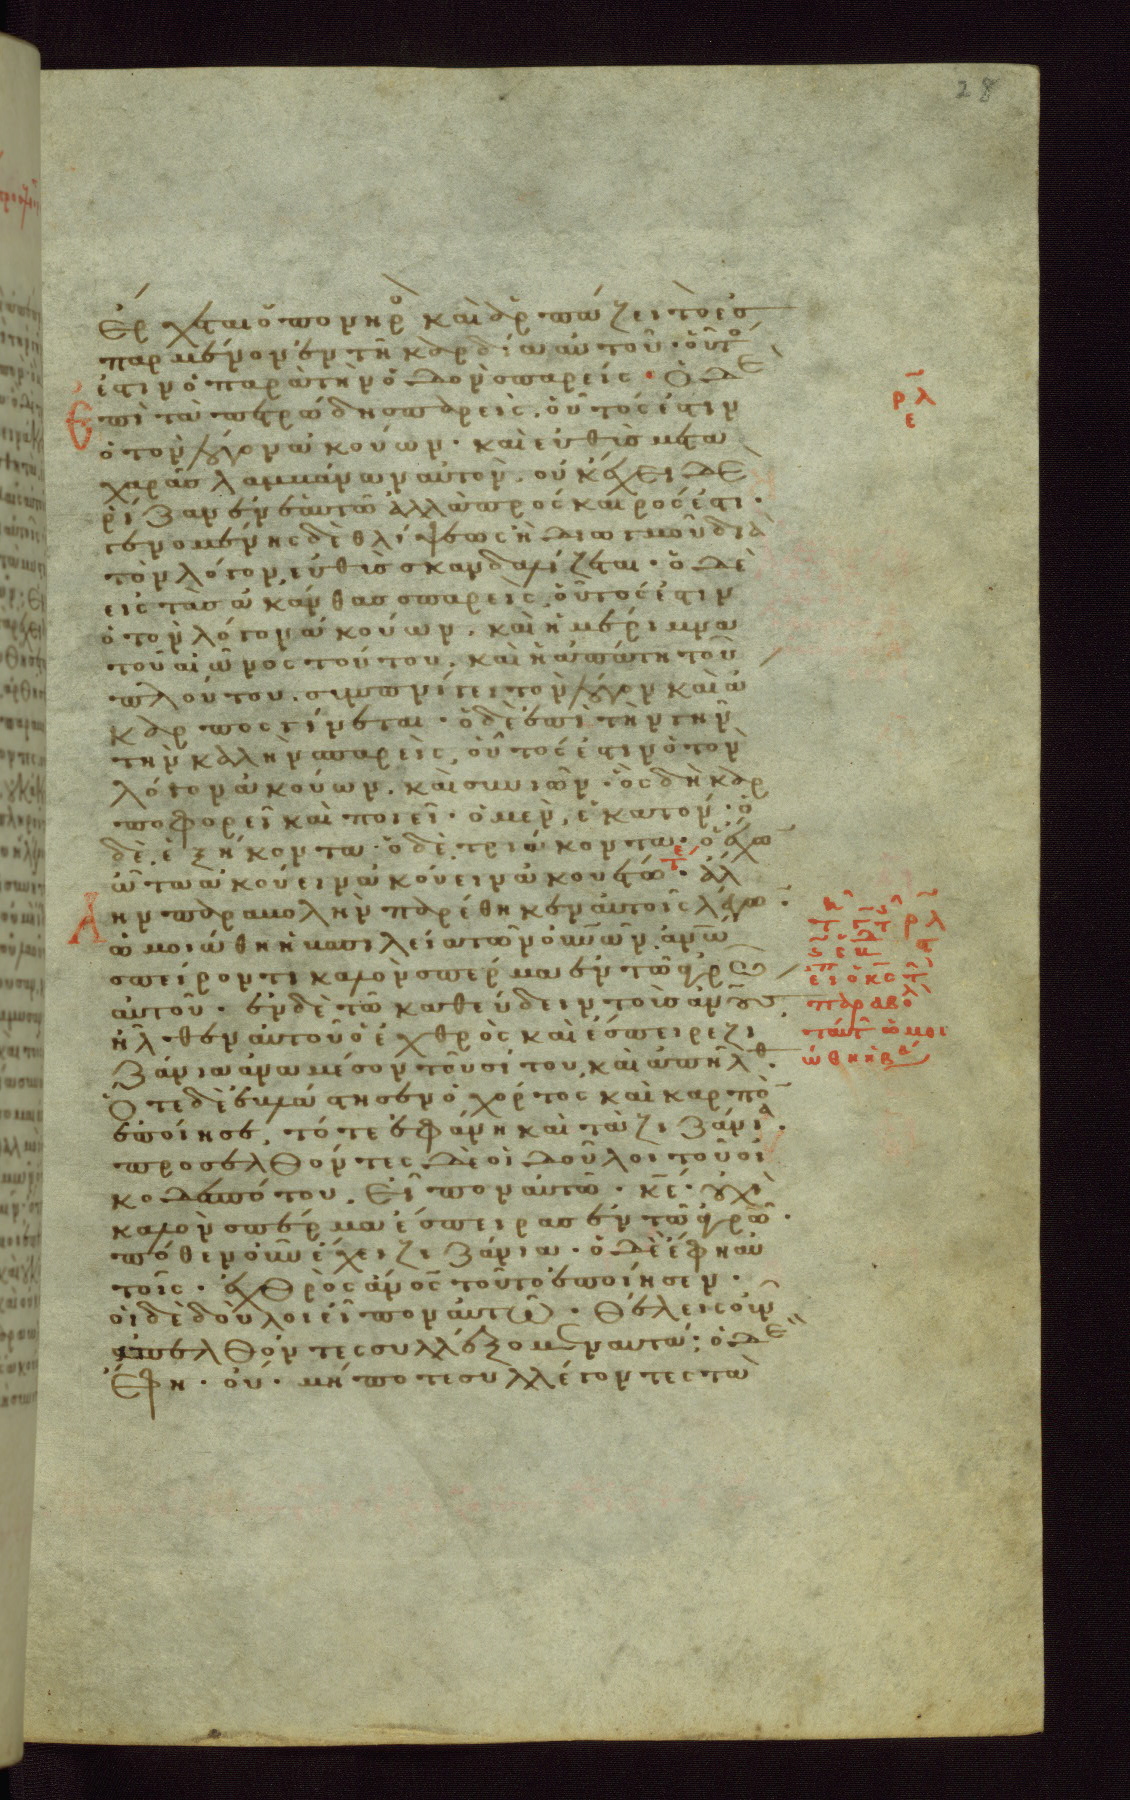 28
ἔρχεται ὁ πονηρὸ καὶ ἁρπάζει τὸ ἐσ
παρμένον ἐν τῆ καρδία αὐτοῦ· οὗτό
ἐστιν ὁ παρὰ τὴν ὁδὸν σπαρείς· ὁ δὲ
ἐπὶ τὰ πετρώδη σπαρεὶς, οὗτός ἐστιν
ὁ τὸν λόγον ἀκούων· καὶ εὐθὺσ μετα
χαρᾶσ λαμβάνων αὐτον. οὐκ ἔχει δὲ
ρίζαν ἐν ἑαυτῶ ἀλλὰ πρόσκαιρός ἐστι·
γενομένης δὲ θλίψεως ἢ διωγμοῦ διὰ
τὸν λόγον, εὐθὺσ σκανδαλίζεται· ὁ δὲ
εἰς τὰσ ἀκάνθασ σπαρεὶς, οὗτός ἐστιν
ὁ τὸν λόγον ἀκούων. καὶ ἡ μέριμνα
τοῦ αἰῶνος τούτου. καὶ ἡ ἀπάτη τοῦ
πλούτου. συμπνίγει τὸν λόγον καὶ ἄ
καρπος γίνεται· ὁ δὲ ἐπὶ τὴν γῆν
τὴν καλὴν σπαρεὶς, οὗτός ἐστιν ὁ τὸν
λόγον ἀκούων. καὶ συνιῶν· ὃς δὴ καρ
ποφορεῖ καὶ ποιεῖ· ὁ μὲν, ἑκατόν· ὁ
δὲ, ἑξήκοντα· ὁ δὲ, τριάκοντα· ὁ ἔχω
ὦτα ἀκούειν ἀκούειν ἀκουέτω· ἄλ
ην παραβολὴν παρέθηκεν αὐτοῖς λέγω·
ὡμοιώθη ἡ βασιλεία τῶν οὐνῶν ἀνῶ
σπείροντι καλὸν σπέρμα ἐν τῶ ἀγρῶ
αὐτοῦ· ἐν δὲ τῶ καθεύδειν τοὺσ ἀνους,
ἦλθεν αὐτοῦ ὁ ἐχθρὸς καὶ ἔσπειρε ζι
ζάνια ἀνα μέσον τοῦ σίτου, καὶ ἀπῆλθ·
Ὅτε δὲ ἐβλάστησεν ὁ χόρτος καὶ καρπὸ
ἐποίησε, τότε ἐφάνη καὶ τὰ ζιζάνια·
προσελθόντες δὲ οἱ δοῦλοι τοῦ οἰ
κοδεσπότου. εἶπον αὐτῶ· κε· οὐχὶ
καλὸν σπέρμα ἔσπειρασ ἐν τῶ ἀγρῶ·
πόθεν οὖν ἔχει ζιζάνια· ὁ δὲ ἔφη αὐ
τοῖς· ἐχθρὸς ἀνος τοῦτο ἐποίησεν·
οἱ δὲ δοῦλοι εἶπον αὐτῶ· θέλεις οὖν
ἀπελθόντες συλλέξομεν αυτά; ὁ δὲ
Ἔφη· οὔ· μήποτε συλλέγοντες τὰ
ρλ
ε
εἶπ ὁ κς τ
παραβολ
ταύτ ὡμοι
ώθη ἡ βα